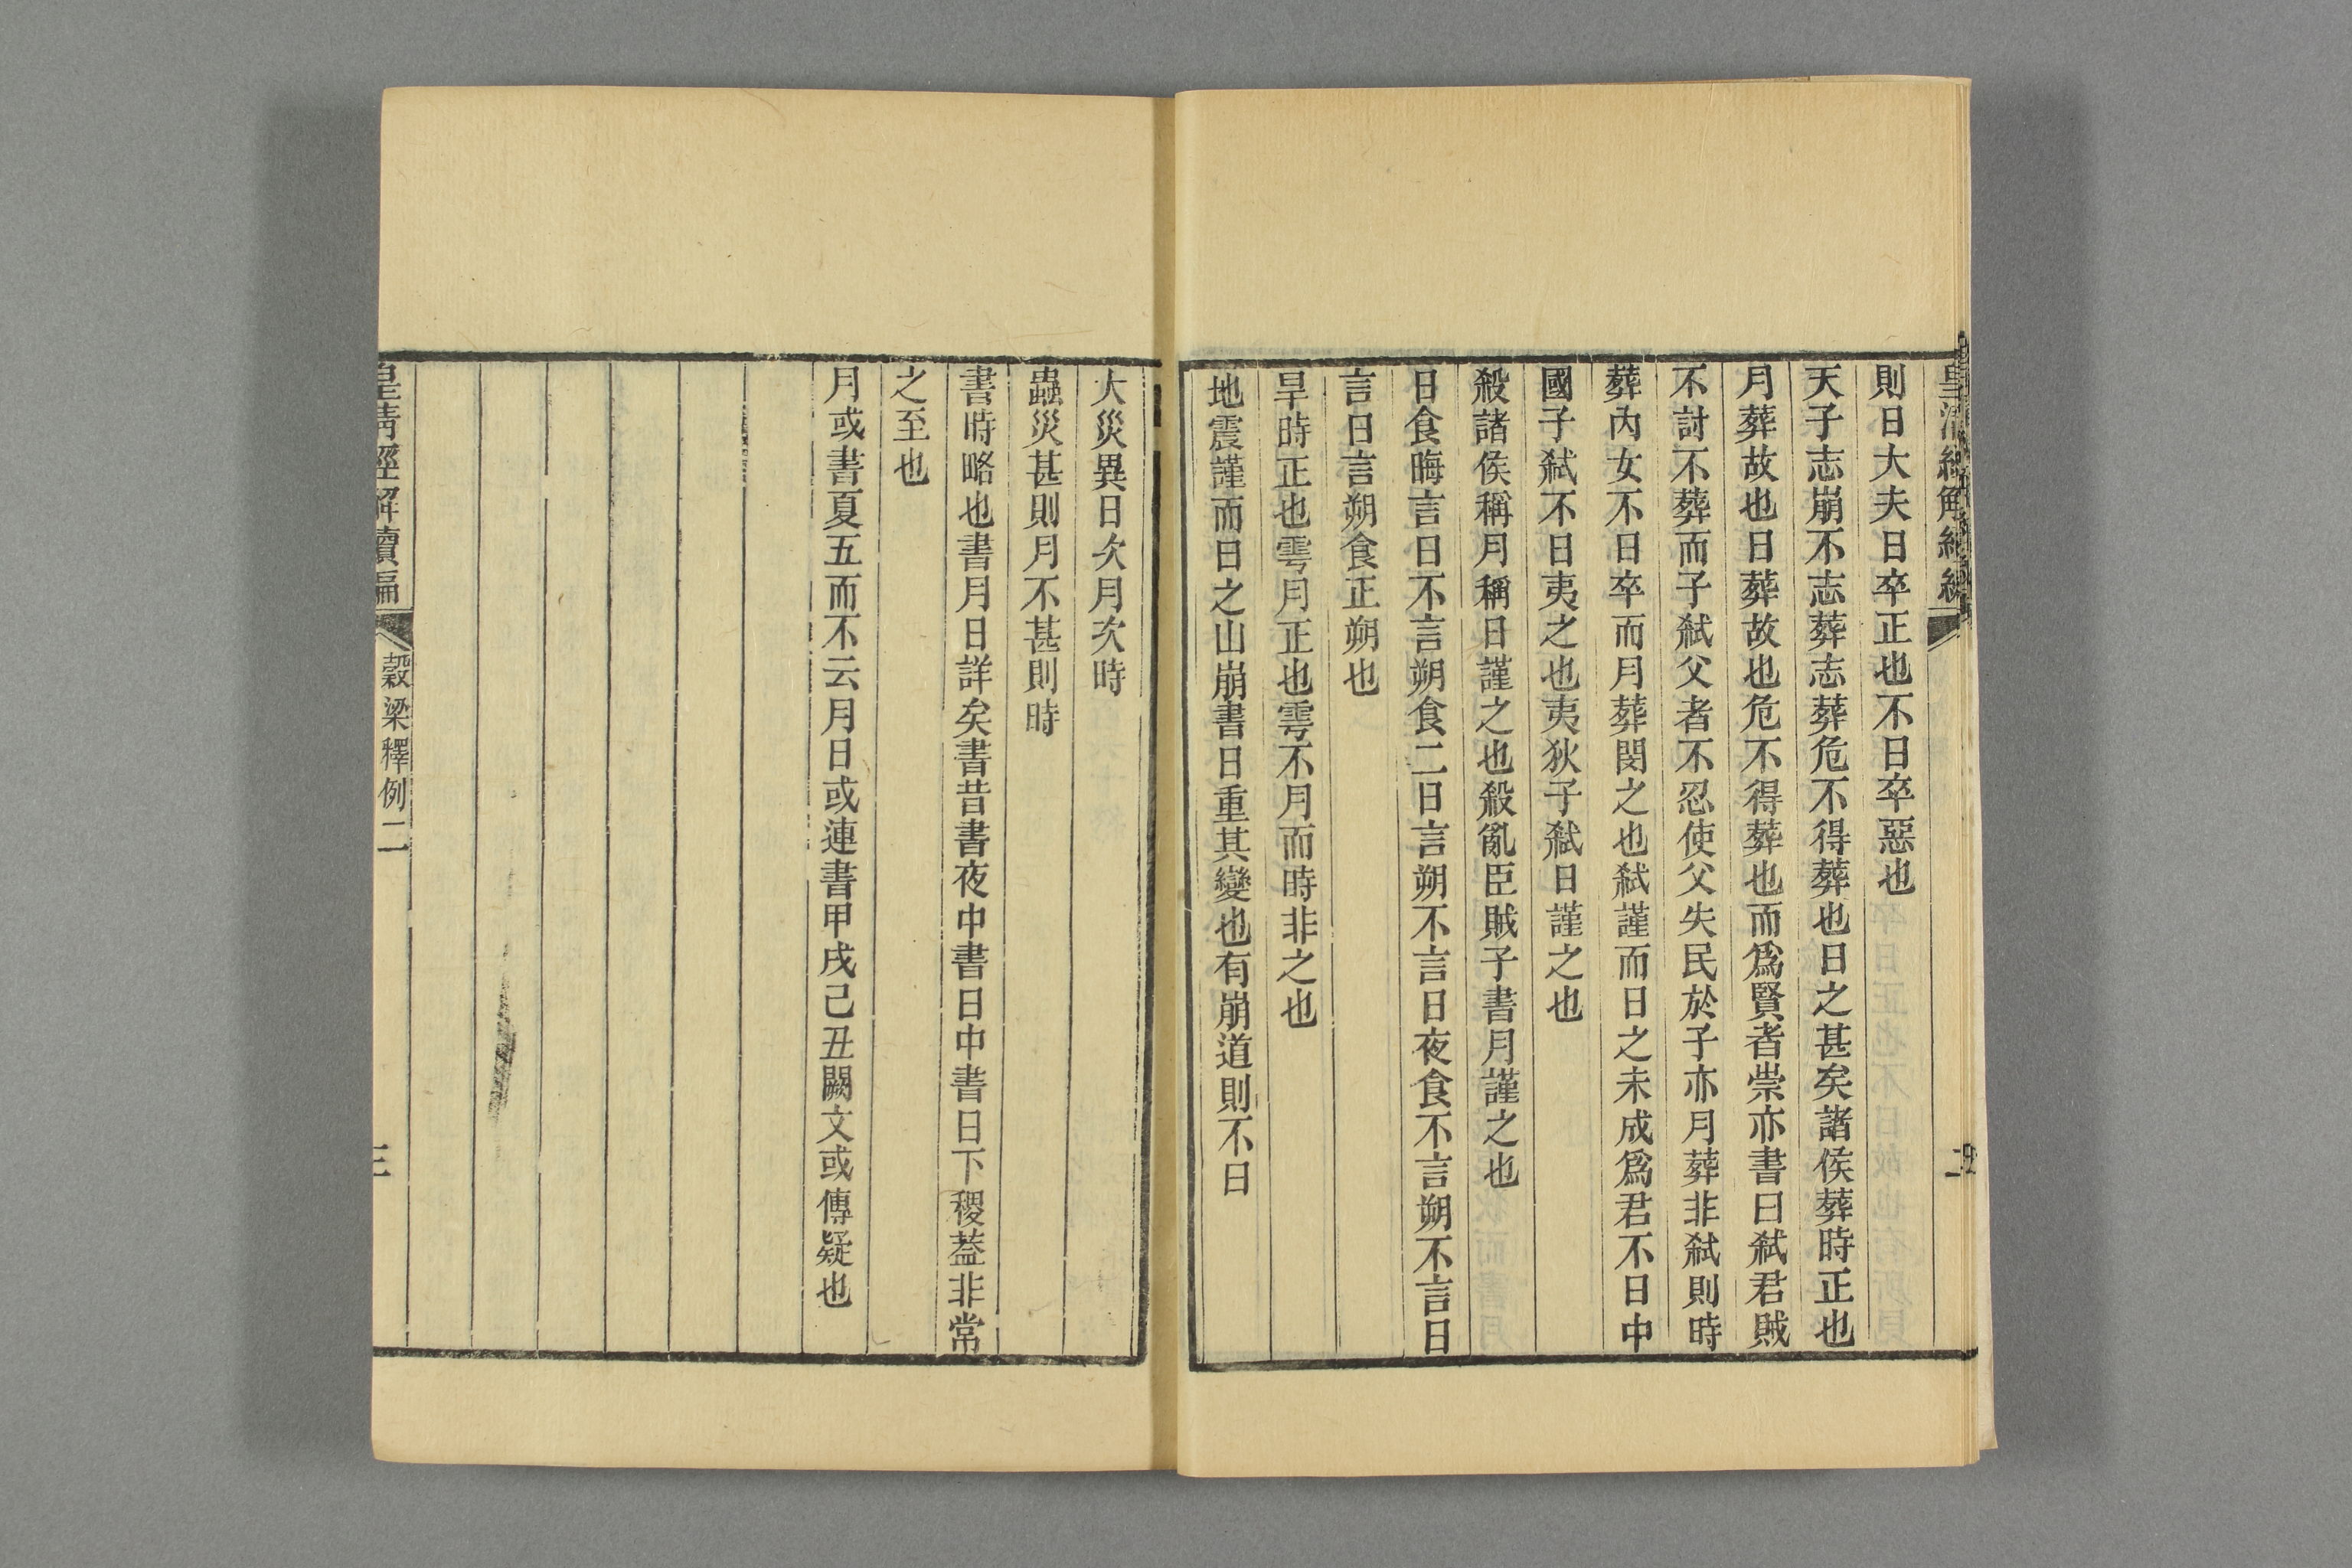 則日大夫日卒正也不日卒惡也
天子志崩不志葬志葬危不得葬也日之甚矣諸侯葬時正也
月葬故也日葬故也危不得葬也而爲賢者崇亦書日弑君賊
不討不葬而子弑父者不忍使父失民於子亦月葬非弑則時
葬內女不日卒而月葬閔之也弑謹而日之未成爲君不日中
國子弑不日夷之也夷狄子弑日謹之也
殺諸侯稱月稱日謹之也殺亂臣賊子書月謹之也
日食晦言日不言朔食二日言朔不言日夜食不言朔不言日
言日言朔食正朔也
旱時正也雩月正也雩不月而時非之也
地震謹而日之山崩書日重其變也有崩道則不日
大災異日次月次時
蟲災甚則月不甚則時
書時略也書月日詳矣書昔書夜中書日中書日下稷葢非常
之至也
月或書夏五而不云月日或連書甲戌己丑闕文或傳疑也
皇清經解續編
穀梁釋例二
三